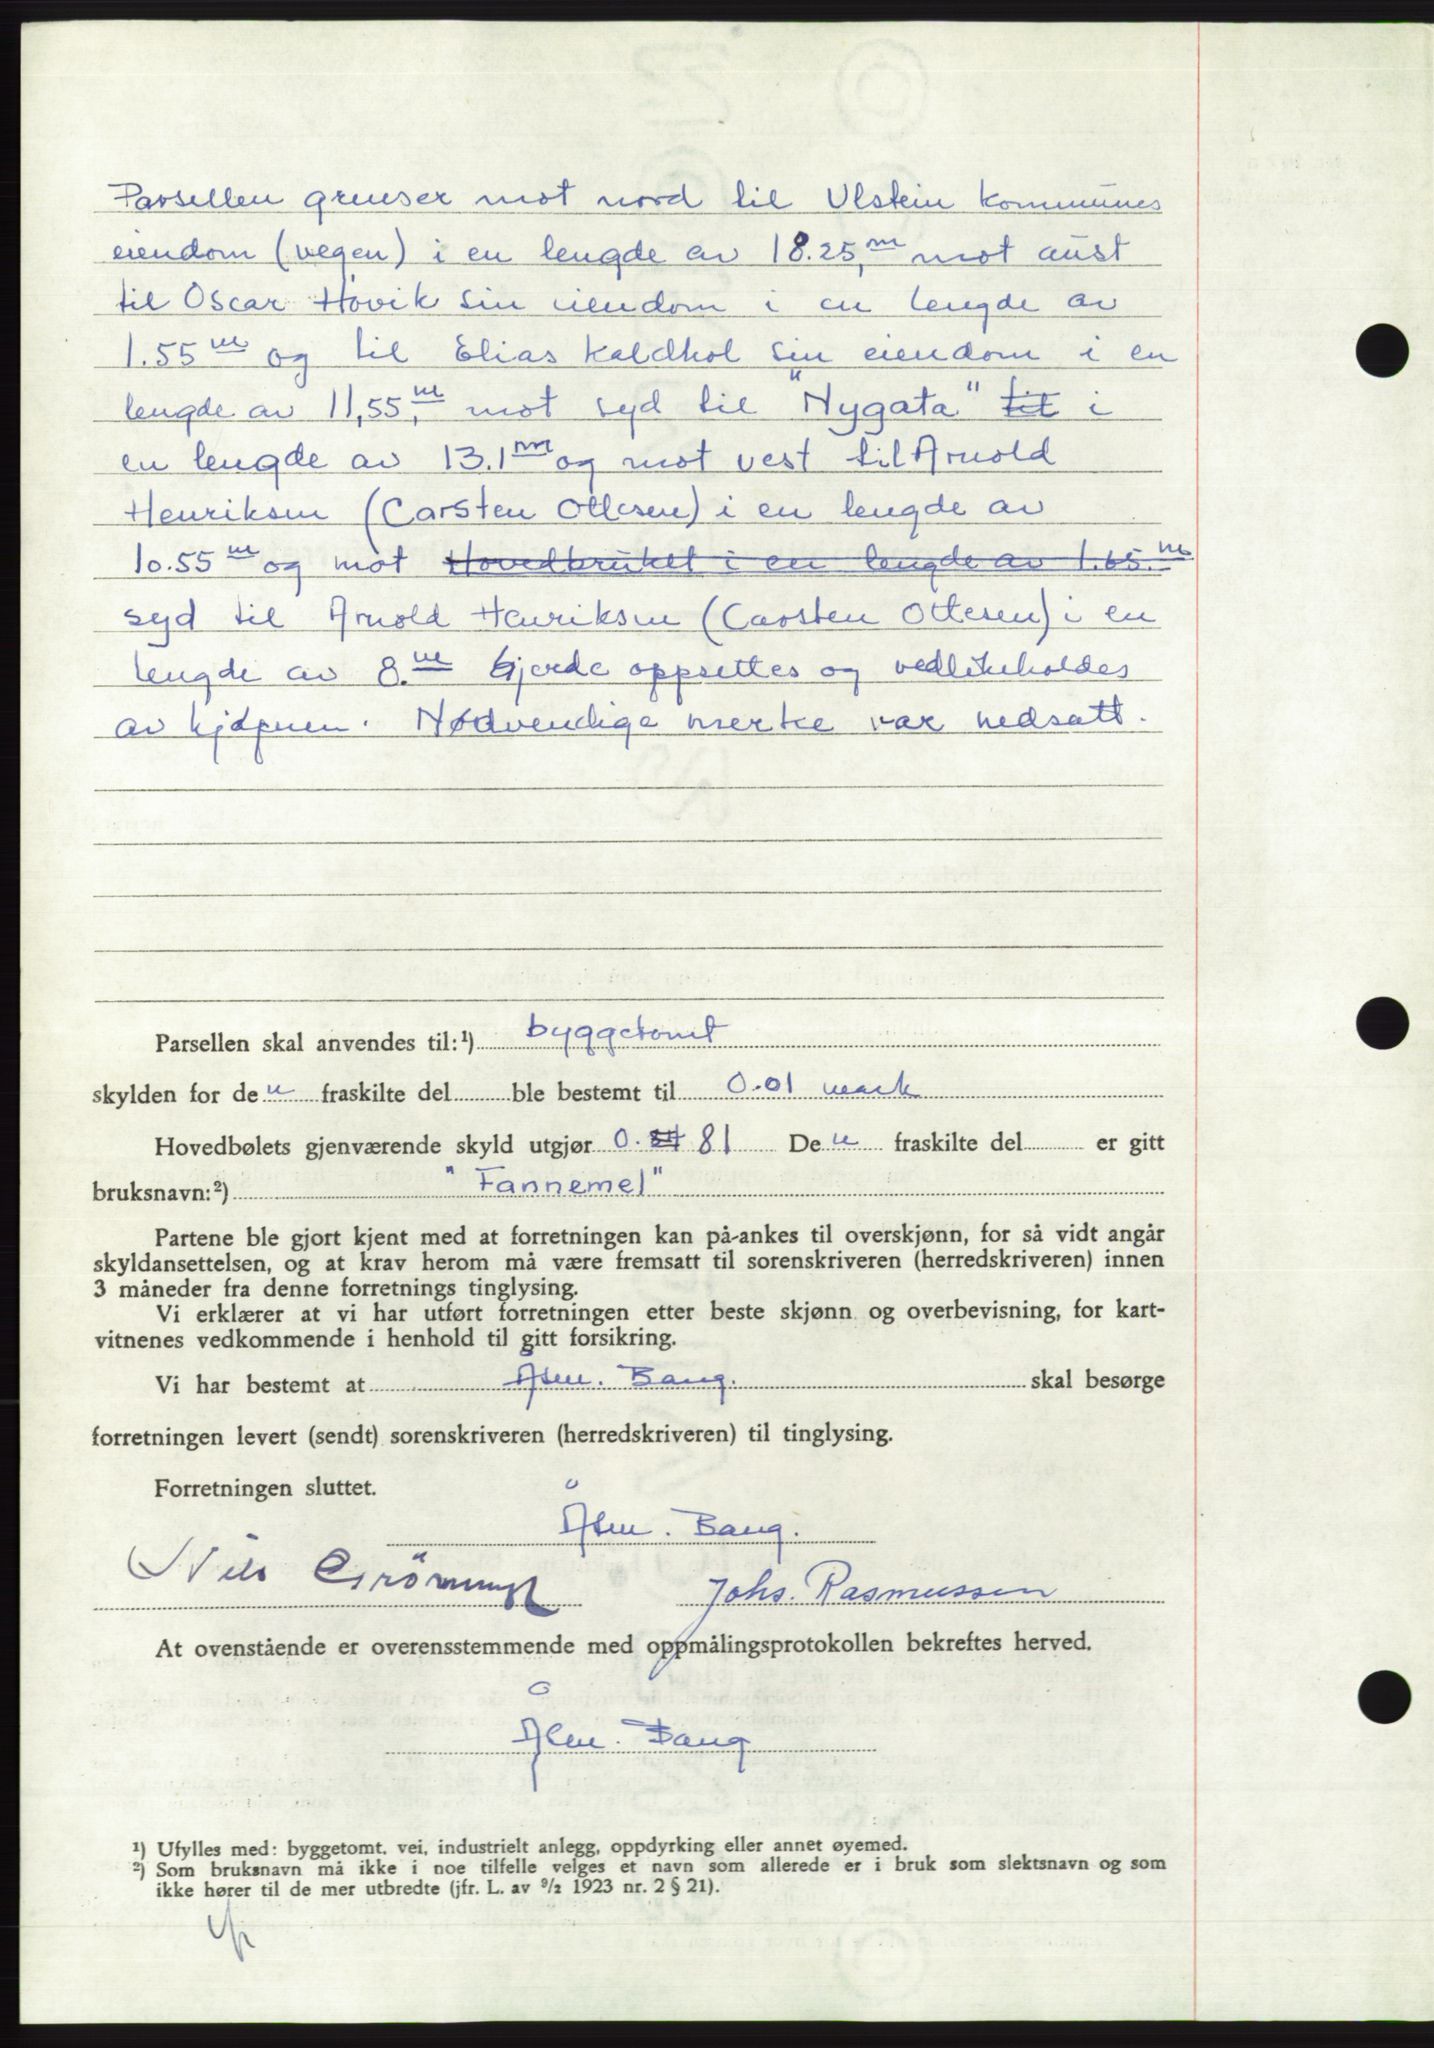 Parsellen grenser mot nord til Ulstein kommunes
eiendom (vegen) i en lengde av 18.25,m mot aust
til Oscar Hovik sin eiendom i en lengde av
1.55 m og til Elias Kaldhol sin eiendom i en
lengde av 11,55,m mot syd til "Nygata" til i
en lengde av 13.1 m og mot vest til Arnold
Henriksen (Carsten Ottesen) i en lengde av
10.55 m og mot Hovedbruket i en lengde av 1.65.m
syd til Arnold Henriksen (Carsten Ottesen) i en
lengde av 8.m Gjerde oppsettes og vedlikeholdes
av kjøpuen. Nødvendige merke var nedsatt.
Parsellen skal anvendes til:¹) byggetomt
skylden for den fraskilte del ble bestemt til 0.01 mark
Hovedbølets gjenværende skyld utgjør 0. 81 Den fraskilte del er gitt
bruksnavn:²) "Fannemel"
Partene ble gjort kjent med at forretningen kan på-ankes til overskjønn, for så vidt angår
skyldansettelsen, og at krav herom må være fremsatt til sorenskriveren (herredskriveren) innen
3 måneder fra denne forretnings tinglysing.
Vi erklærer at vi har utført forretningen etter beste skjønn og overbevisning, for kart-
vitnenes vedkommende i henhold til gitt forsikring.
Vi har bestemt at Åsm. Bang. skal besørge
forretningen levert (sendt) sorenskriveren (herredskriveren) til tinglysing.
Forretningen sluttet.
Åsm. Bang.
Nils
Johs. Rasmussen
At ovenstående er overensstemmende med oppmålingsprotokollen bekreftes herved.
Åsm. Bang
¹) Ufylles med: byggetomt. vei, industrielt anlegg, oppdyrking eller annet øyemed.
²) Som bruksnavn må ikke i noe tilfelle velges et navn som allerede er i bruk som slektsnavn og som
ikke hører til de mer utbredte (jfr. L. av 9/2 1923 nr. 2 § 21).